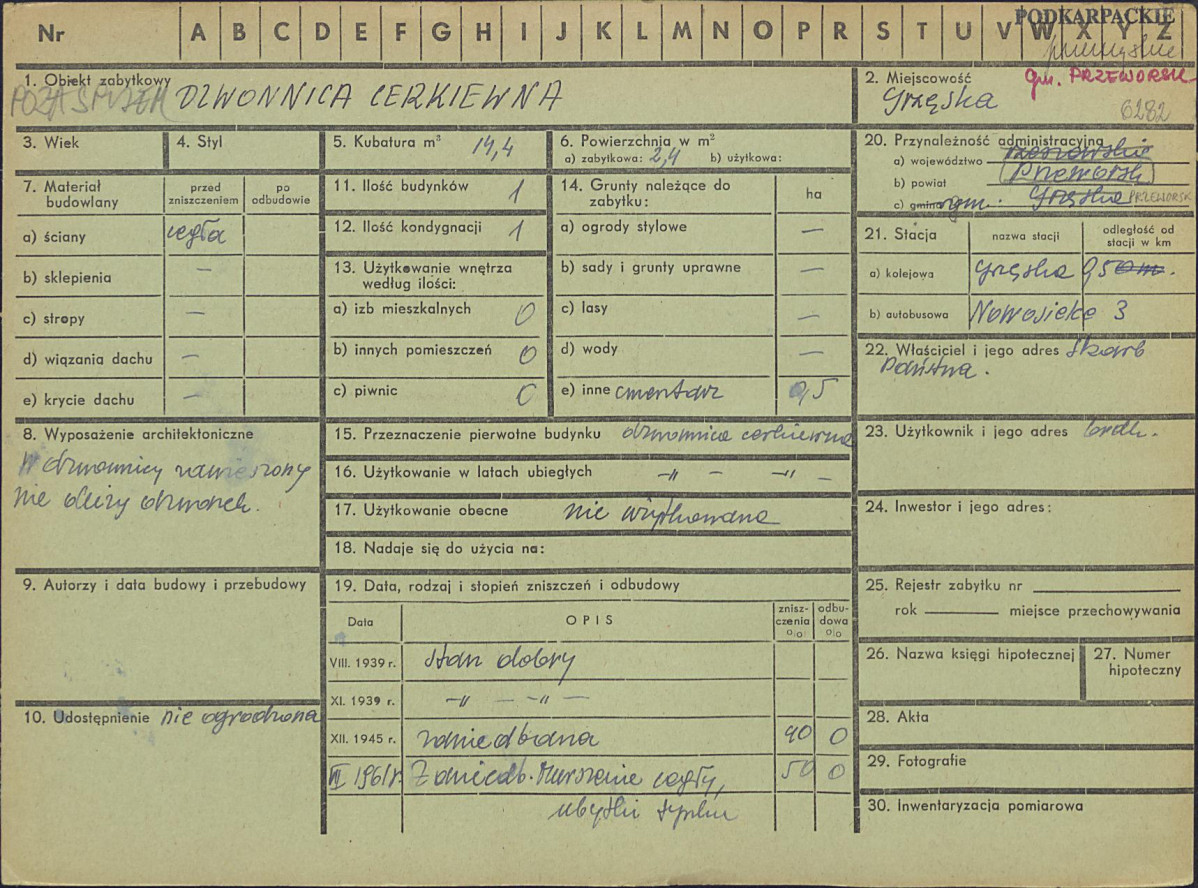 Nr A B C D E F G H I J K L M N O P R S T U V W X Y Z
PODKARPACKIE
przemyskie
1. Obiekt zabytkowy
POZA SPISEM DZWONNICA CERKIEWNA
2. Miejscowość gm. PRZEWORSK
Grzęska
6282
3. Wiek
4. Styl
5. Kubatura m³ 14,4
6. Powierzchnia w m²
a) zabytkowa: 2,4 b) użytkowa:
7. Materiał budowlany
przed zniszczeniem
po odbudowie
a) ściany cegła
b) sklepienia —
c) stropy —
d) wiązania dachu —
e) krycie dachu —
11. Ilość budynków 1
12. Ilość kondygnacji 1
13. Użytkowanie wnętrza
według ilości:
a) izb mieszkalnych 0
b) innych pomieszczeń 0
c) piwnic 0
14. Grunty należące do
zabytku:
ha
a) ogrody stylowe —
b) sady i grunty uprawne —
c) lasy —
d) wody —
e) inne cmentarz 0,5
20. Przynależność administracyjna
a) województwo rzeszowskie
b) powiat Przeworsk
c) gmina gm. Grzęska PRZEWORSK
21. Stacja
nazwa stacji
odległość od
stacji w km
a) kolejowa Grzęska 0,50 m.
b) autobusowa Nowosielce 3
22. Właściciel i jego adres Skarb
Państwa.
8. Wyposażenie architektoniczne
W dzwonnicy zawieszony
nie duży dzwonek.
15. Przeznaczenie pierwotne budynku dzwonnica cerkiewna
16. Użytkowanie w latach ubiegłych —„— —„—
17. Użytkowanie obecne nie użytkowana
18. Nadaje się do użycia na:
23. Użytkownik i jego adres brak.
24. Inwestor i jego adres:
9. Autorzy i data budowy i przebudowy
19. Data, rodzaj i stopień zniszczeń i odbudowy
Data
OPIS
znisz-
czenia
o/o
odbu-
dowa
o/o
VIII. 1939 r. stan dobry
XI. 1939 r. —„— —„—
XII. 1945 r. zaniedbana 40 0
VII 1961 r. Zaniedb. Murszenie cegły, 50 0
ubytki tynku
10. Udostępnienie nie ogrodzona
25. Rejestr zabytku nr
rok miejsce przechowywania
26. Nazwa księgi hipotecznej
27. Numer
hipoteczny
28. Akta
29. Fotografie
30. Inwentaryzacja pomiarowa